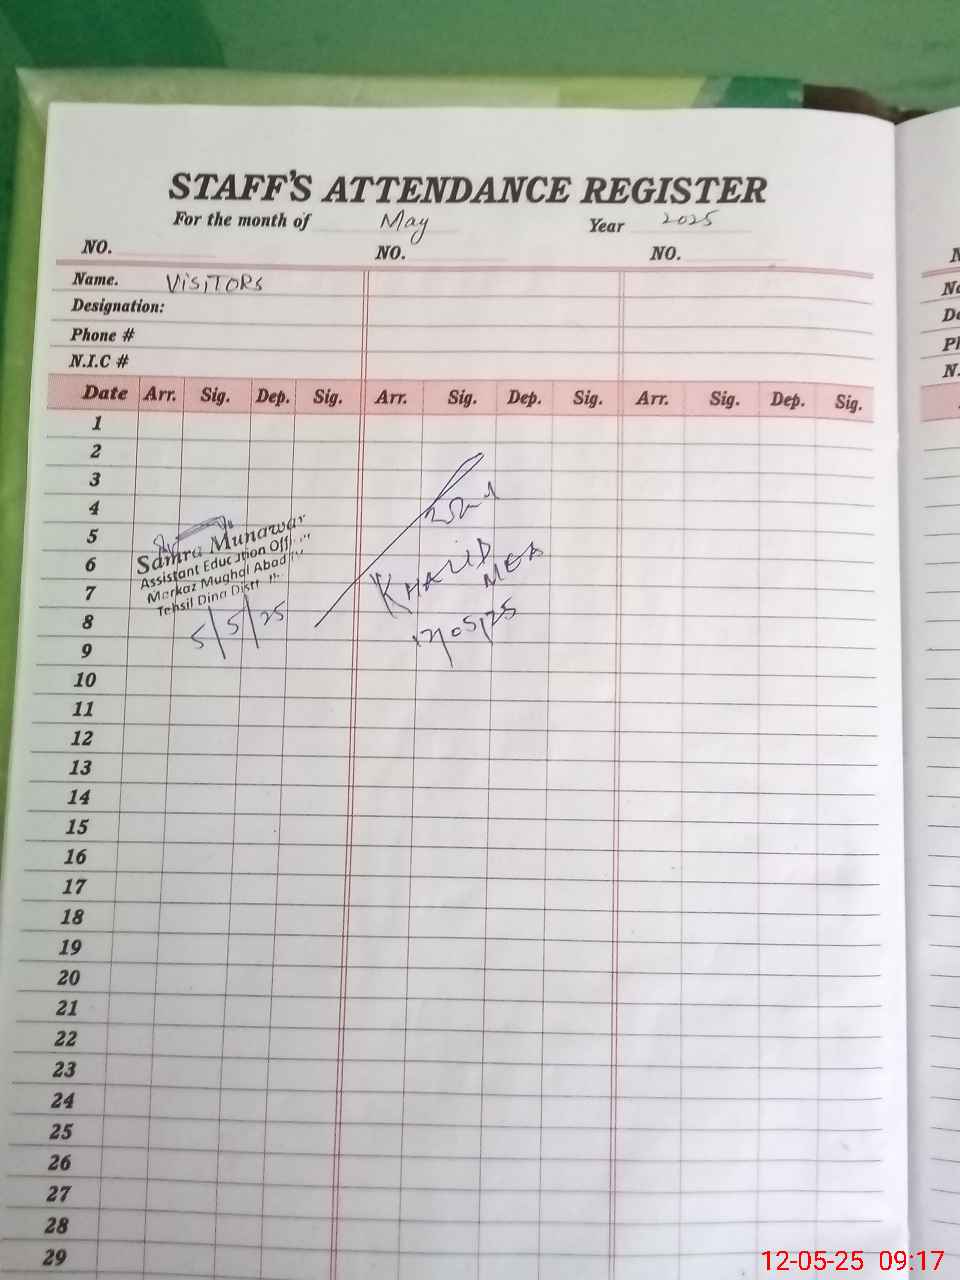 STAFF'S ATTENDANCE REGISTER
For the month of May Year 2025
NO. NO. NO.
Name. VISITORS
Designation:
Phone #
N.I.C #
Date Arr. Sig. Dep. Sig. Arr. Sig. Dep. Sig. Arr. Sig. Dep. Sig.
1
2
3
4
5
6
7
8
9
10
11
12
13
14
15
16
17
18
19
20
21
22
23
24
25
26
27
28
29
Samra Munawar
Assistant Education
Markaz Mughal Abad
Tehsil Dina
5/5/25
KHALID
MEA
12/05/25
12-05-25 09:17